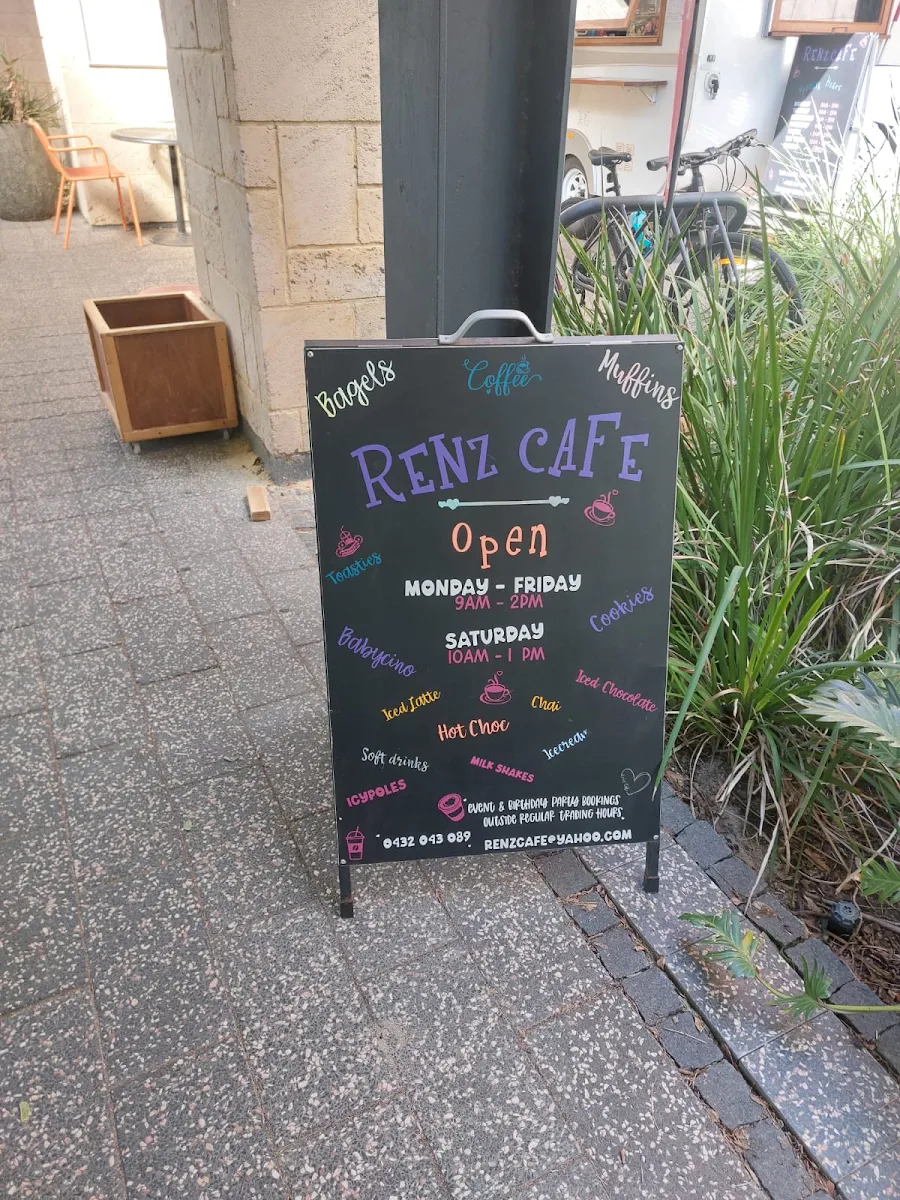 Bagels
Coffee
Muffins
RENZ CAFE
Open
Toasties
MONDAY - FRIDAY
9AM - 2PM
Cookies
Babycino
SATURDAY
10AM - 1 PM
Iced Latte
Chai
Iced Chocolate
Hot Choc
Icecream
Soft drinks
MILK SHAKES
ICYPOLES
"EVENT & BIRTHDAY PARTY BOOKINGS
OUTSIDE REGULAR TRADING HOURS"
0432 043 089
RENZCAFE@YAHOO.COM
RENZ CAFE